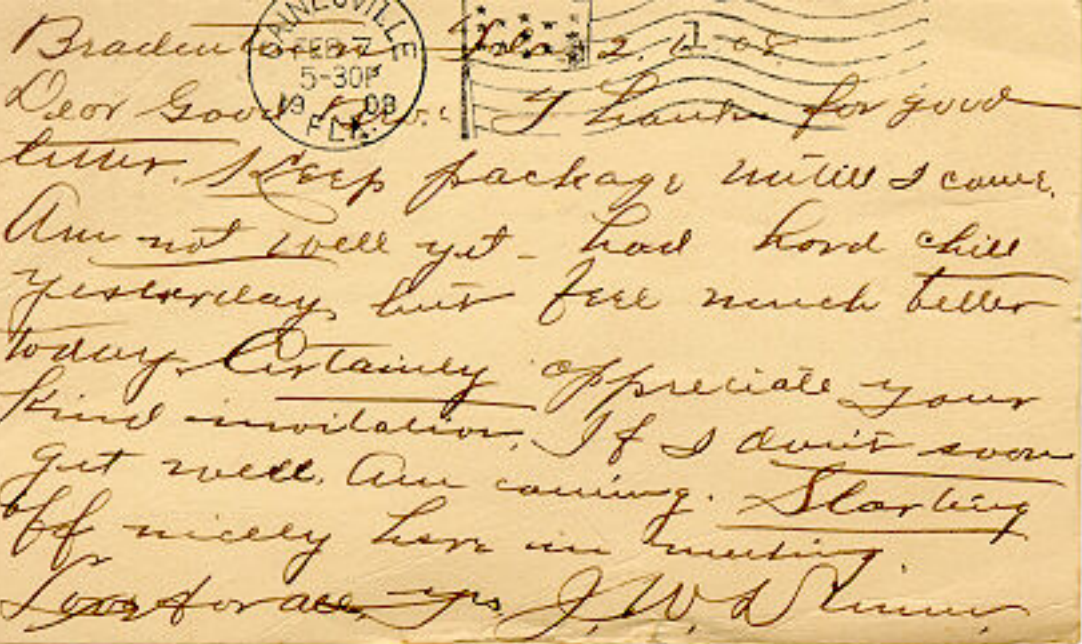 Bradentown Fla 2. 7. 08.
GAINESVILLE
FEB 7
5-30P
1908
FLA.
Dear Good Thanks for good
letter. Keep package untill I come.
Am not well yet - had hard chill
yesterday but feel much better
today. Certainly appreciate your
kind invitation. If I don't soon
get well. Am coming. Starting
off nicely here in meeting.
Love for all. Yrs. J. W.